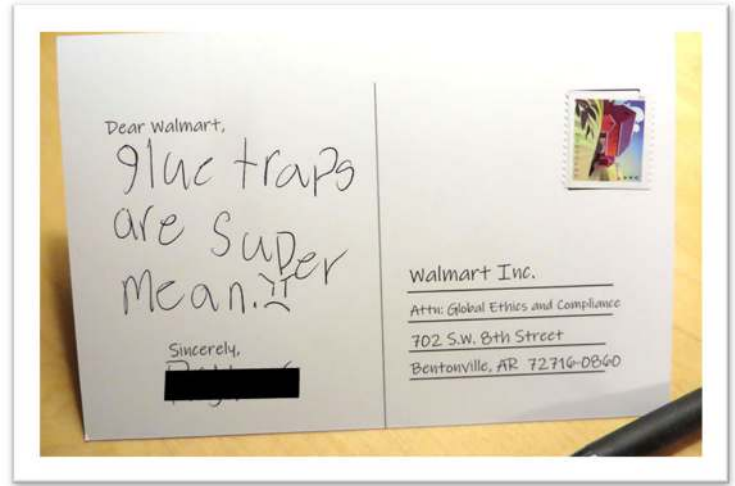 Dear Walmart,
glue traps
are super
mean.
Sincerely,
Walmart Inc.
Attn: Global Ethics and Compliance
702 S.W. 8th Street
Bentonville, AR 72716-0860